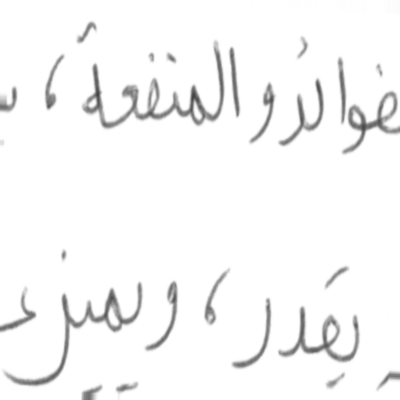 فوائد و المنفعة ،
يقدر ، ويميز